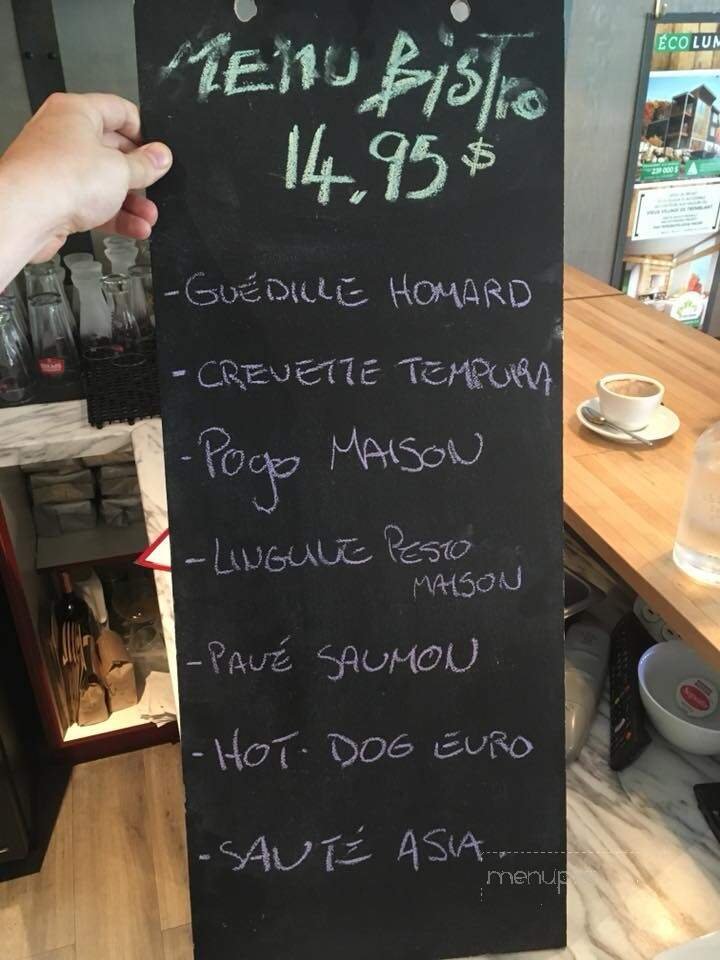 MENU Bistro
14,95 $
- GUÉDILLE HOMARD
- CREVETTE TEMPURA
- Pogo MAISON
- LINGUINE PESTO
MAISON
- PAVÉ SAUMON
- HOT-DOG EURO
- SAUTÉ ASIA.
menup
ÉCOLUM
239 000 $